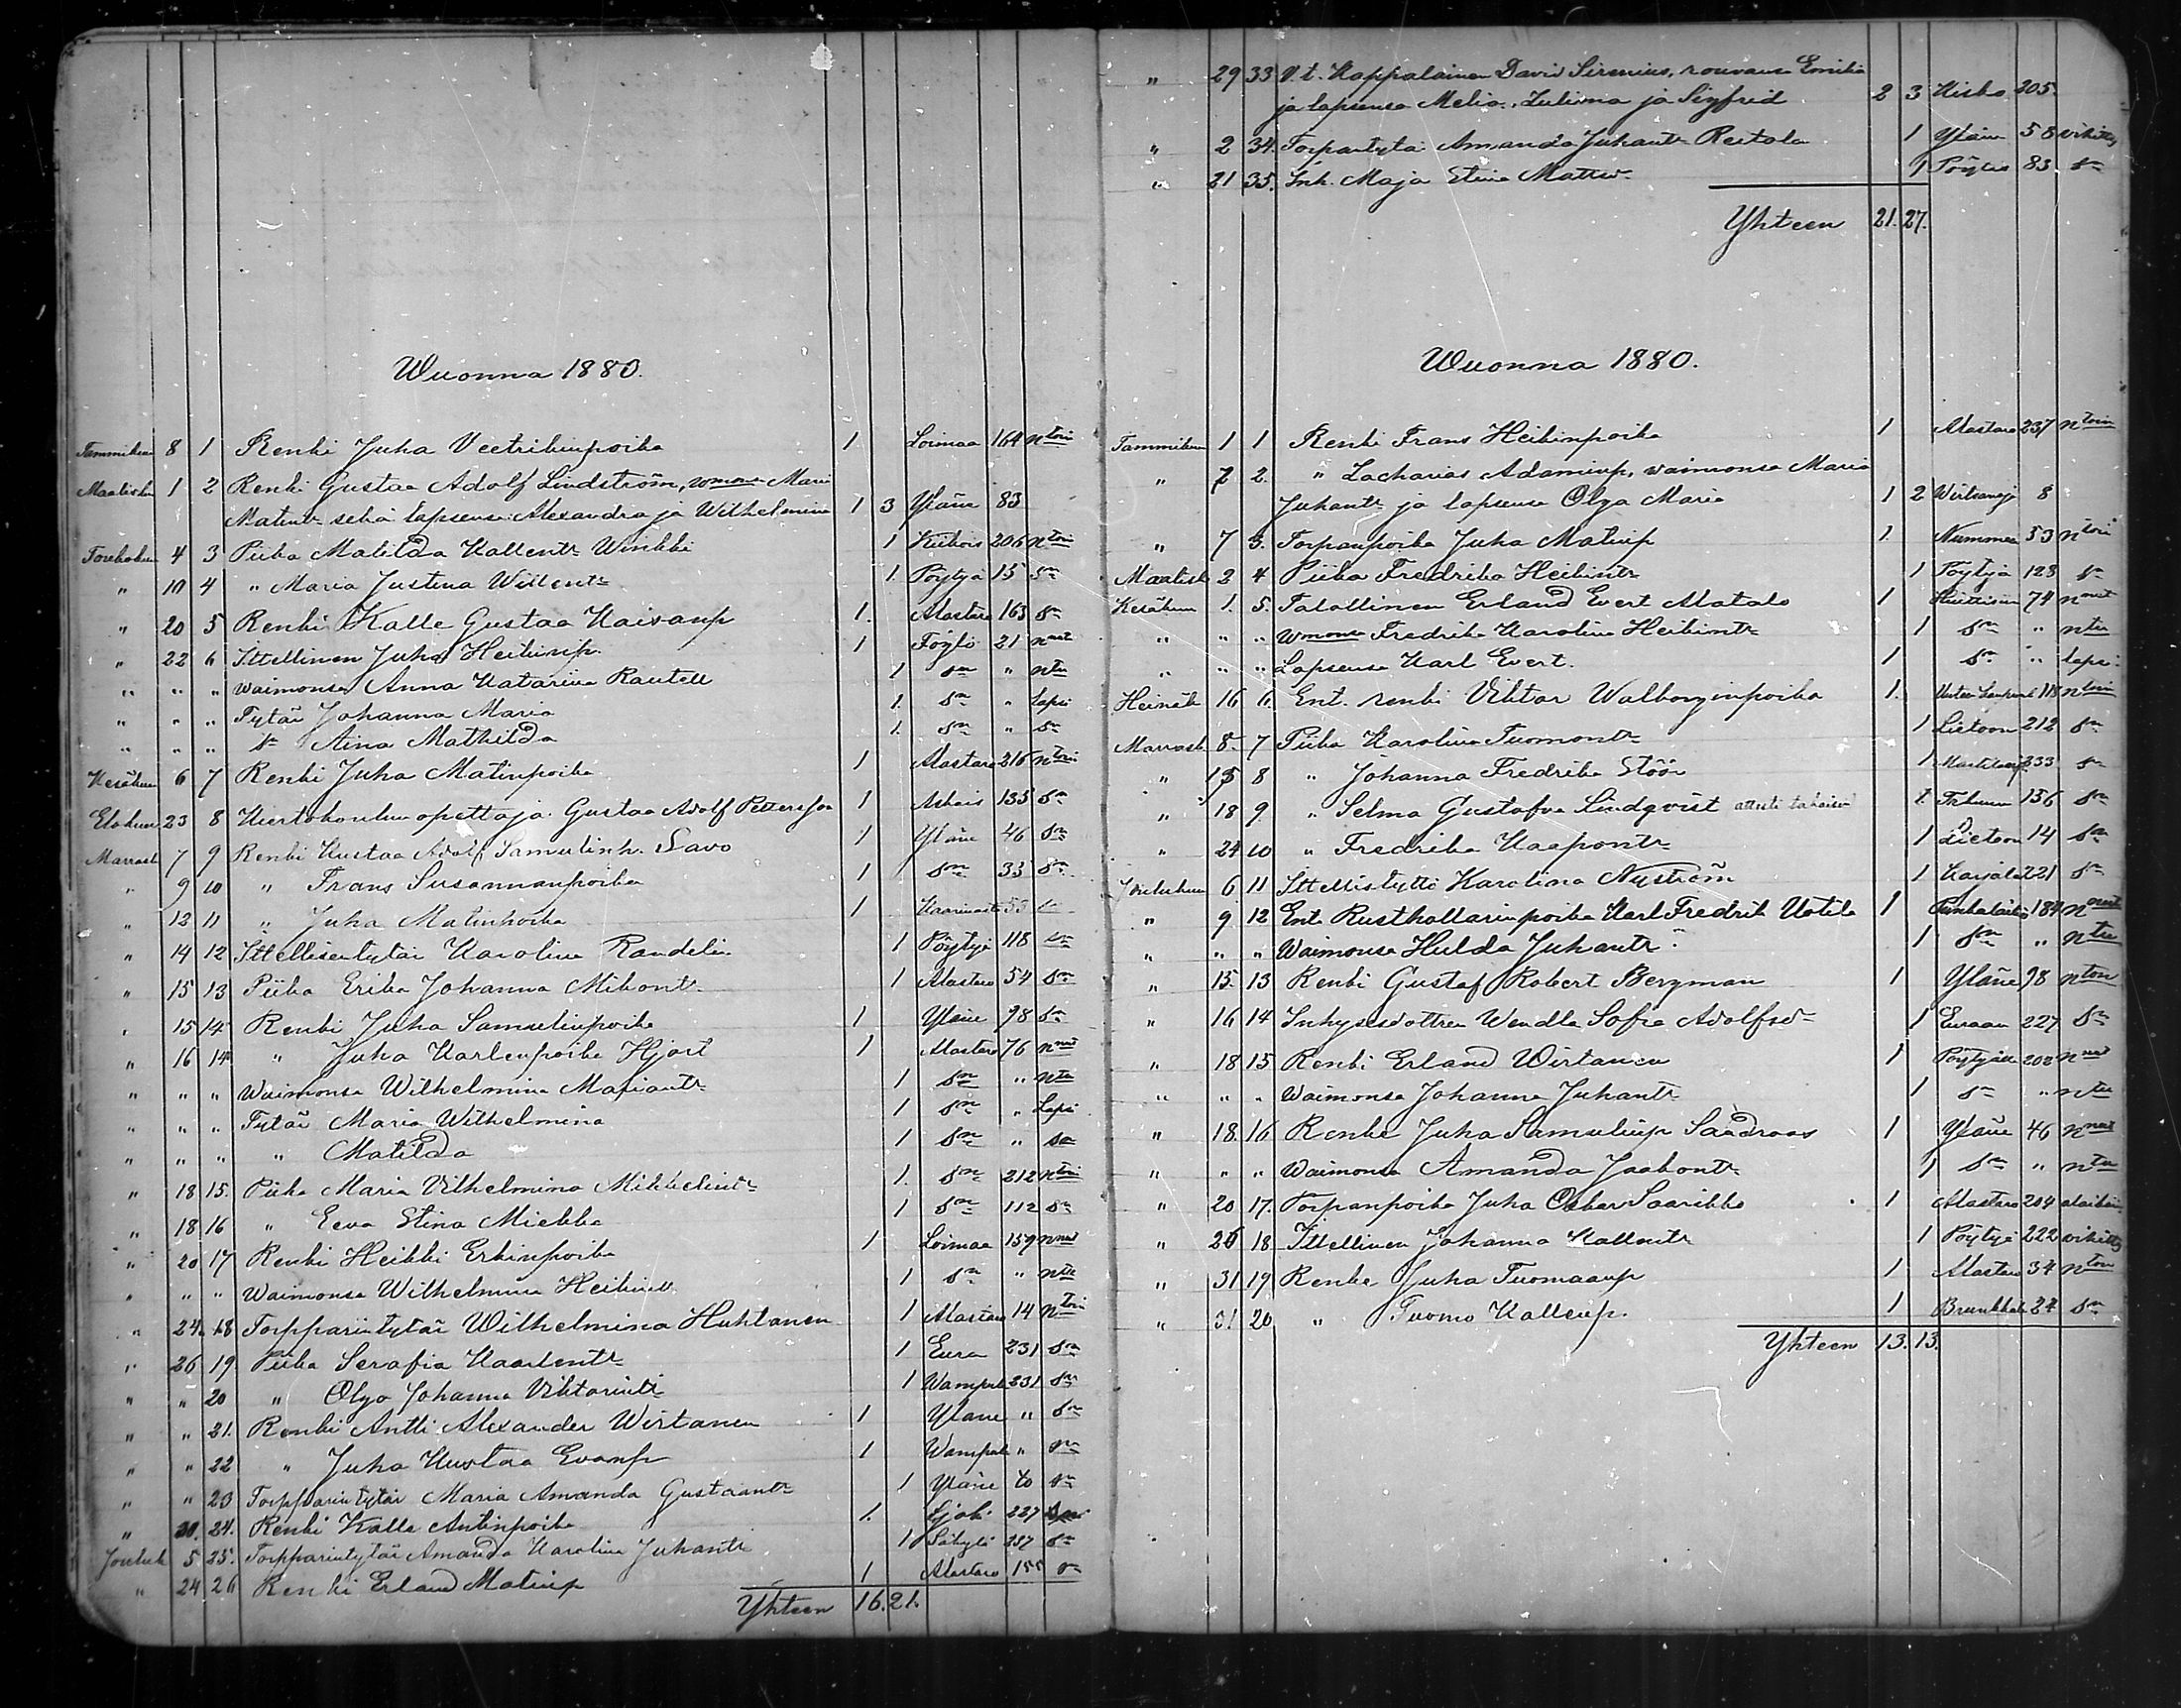 Wuonna 1880.
Tammikuu 8 1 Renki Juha Veetrikinpoika 1 Loimaa 164 ntoin
Maalisku 1 2 Renki Gustaa Adolf Lindström, wmonsa Maria
Matint. sekä lapsensa Alexandra ja Wilhelmina 1 3 Yläne 83
Toukokuu 4 3 Piika Matilda Kallentr Winkki 1 Kiikois 206 ntoin
" 10 4 " Maria Justina Willentr 1 Pöytyä 15 sn
" 20 5 Renki Kalle Gustaa Kaivanp 1 Alastaro 163 sn
" 22 6 Ittellinen Juha Heikinp. 1 Föglö 21 nnut
" " " Waimonsa Anna Katarina Rautell 1 sn " ntu
" " " Tytär Johanna Maria 1 sn " lapsi
" " " sn Aina Mathilda 1 sn " sn
Kesäkuu 6 7 Renki Juha Matinpoika 1 Alastaro 216 ntoin
Elokuu 23 8 Kiertokoulun opettaja Gustaa Adolf Pettersson 1 Askais 135 sn
Marrask 7 9 Renki Kustaa Adolf Samulinp. Savo 1 Yläne 46 sn
" 9 10 " Frans Susannanpoika 1 sn 33 sn
" 12 11 " Juha Matinpoika 1 53 sn
" 14 12 Ittellisentytär Karolina Randelin 1 Pöytyä 118 sn
" 15 13 Piika Erika Johanna Mikontr 1 Alastaro 54 sn
" 15 14 Renki Juha Samuelinpoika 1 Yläne 98 sn
" 16 14 " Juha Karlenpoika Hjort 1 Alastaro 76 nnut
" " " Waimonsa Wilhelmina Mariantr 1 sn " ntu
" " " Tytär Maria Wilhelmina 1 sn " Lapsi
" " " " Matilda 1 sn " sn
" 18 15. Piika Maria Vilhelmina Mikkelintr 1. sn 212 ntoin
" 18 16 " Eeva Stina Miekka 1 sn 112 sn
" 20 17 Renki Heikki Erkinpoika 1 Loimaa 159 nnut
" " " Waimonsa Wilhelmina Heikintr 1 sn " ntu
" 24. 18 Torpparintytär Wilhelmina Huhtanen 1 Alastaro 14 ntoin
" 26 19 Piika Serafia Kaarlentr 1 Eura 231 sn
" " 20 " Olga Johanna Viktorintr 1 Wampul 231 sn
" " 21. Renki Antti Alexander Wirtanen 1 Yläne " sn
" " 22 " Juha Kustaa Evanp 1 Wampul " sn
" " 23 Torpparintytär Maria Amanda Gustaantr 1 Yläne 40 sn
" 30. 24. Renki Kalle Antinpoika 1. 227
Jouluk 5 25. Torpparintytär Amanda Karolina Juhantr 1 Säkylä 237 sn
" 24 26 Renki Erland Matinp 1 Alastaro 155 sn
Yhteen 16. 21.
" 29 33 V.t. Kappalainen David Sirenius, rouvansa Emilia
ja lapsensa Melia, Juliima ja Sigfrid 2 3 Kisko 205
" 2 34. Torpantytär Amanda Juhantr Reitola 1 Yläne 58 vihitty
" 21 35. Inh. Maja Stina Mattsd. 1 Pöytyä 83 sn
Yhteen 21. 27.
Wuonna 1880.
Tammikuu 1 1 Renki Frans Heikinpoika 1 Alastaro 237 ntoin
" 7 2. " Zacharias Adaminp, waimonsa Maria
Juhantr ja lapsensa Olga Maria 1 2 8
" 7 3. Torpanpoika Juha Matinp 1 Nummea 53 ntoin
Maalisk 2 4 Piika Fredrika Heikintr 1 Pöytyä 128 sn
Kesäkuu 1. 5. Talollinen Erland Evert Matalo 1 74 nnut
" " " Wmonsa Fredrika Karolina Heikintr 1 sn " ntu
" " " Lapsensa Karl Evert. 1 sn " lapsi
Heinäk 16 6. Ent. renki Viktor Walborginpoika 1. 118 ntoin
Marrask 8. 7 Piika Karolina Tuomontr 1 Lietoon 212 sn
" 15 8 " Johanna Fredrika Stöör 1 233 sn
" 18 9 " Selma Gustafva Lindqvist takaisin 1 136 sn
" 24 10 " Fredrika Kaspontr 1 Lietoon 14 sn
Joulukuu 6 11 Ittellistyttö Karolina Nyström 1 Karjala 221 sn
" 9 12 Ent. Rusthollarinpoika Karl Fredrik Uotila 1 Punkalaitio 184 nnut
" " " Waimonsa Hulda Juhantr 1 sn " ntu
" 15. 13 Renki Gustaf Robert Bergman 1 Yläne 98 ntoin
" 16 14 Inhysesdottren Wendla Sofia Adolfsd 1 Euraan 227 sn
" 18 15 Renki Erland Wirtanen 1 Pöytyälle 202 nnut
" " " Waimonsa Johanna Juhantr 1 sn " ntu
" 18. 16 Renki Juha Samulinp Sandroos 1 Yläne 46 nnut
" " " Waimonsa Amanda Jaakontr 1 sn " ntu
" 20 17. Torpanpoika Juha Oskar Saarikko 1 Alastaro 204 alaikäi
" 26 18 Ittellinen Johanna Kallentr 1 Pöytyä 222 vihitty
" 31 19 Renki Juha Tuomaanp 1 Alastaro 34 ntoin
" 31 20 " Tuomo Kallenp. 1 Brunkkala 27 sn
Yhteen 13. 13.